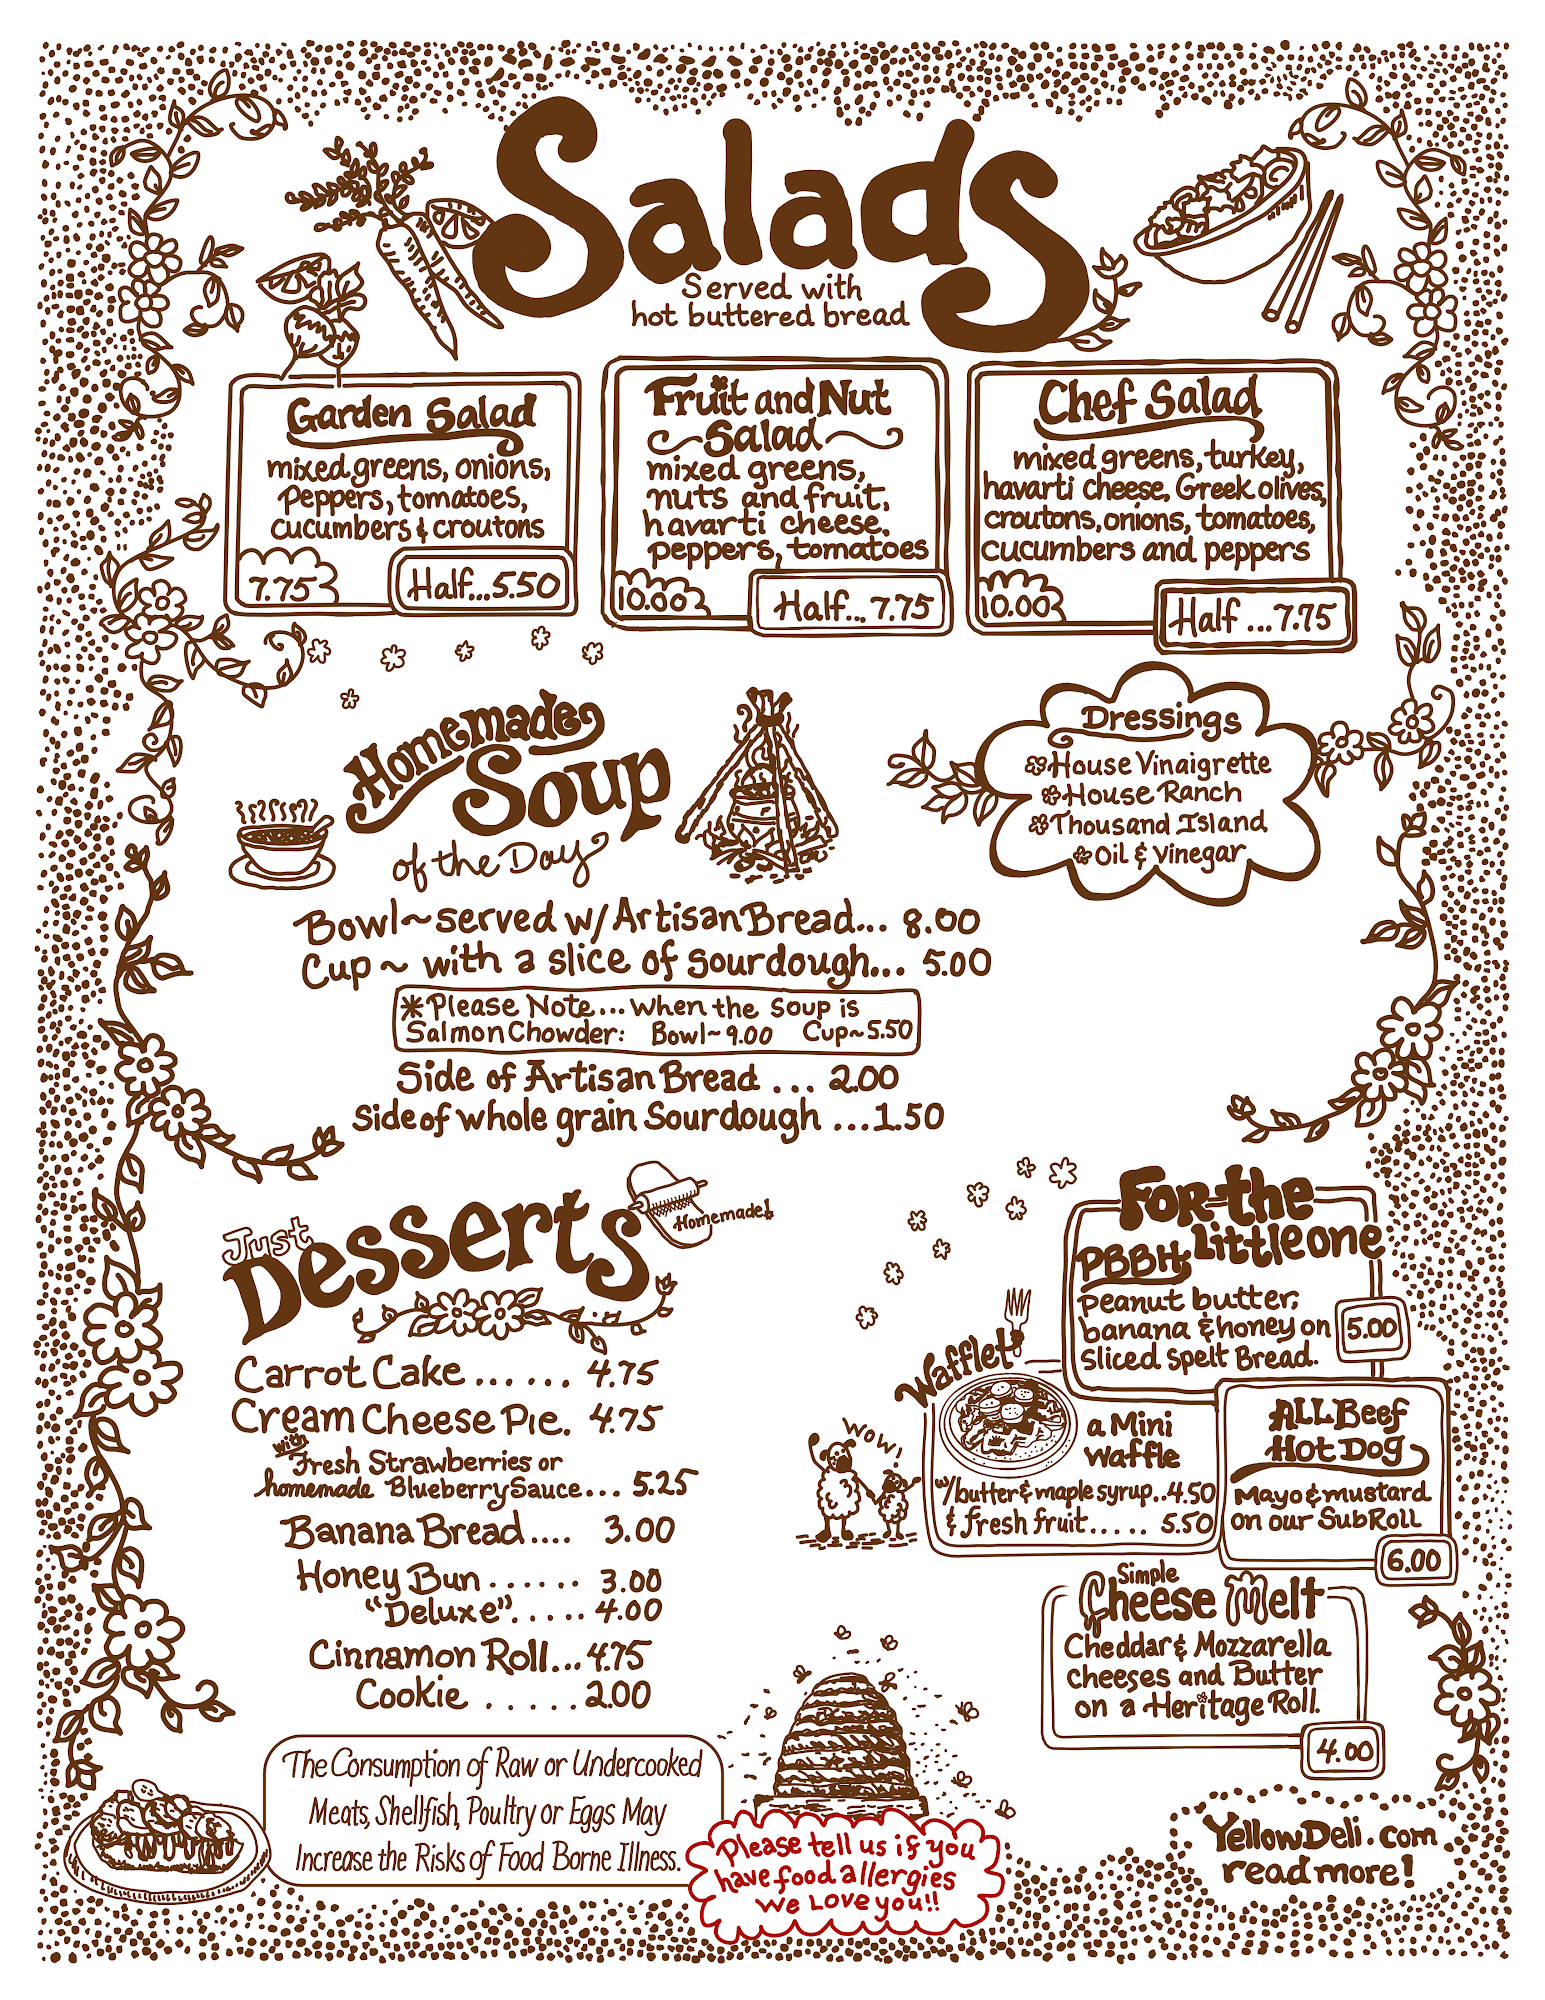 Salads
Served with
hot buttered bread
Garden Salad
mixed greens, onions,
Peppers, tomatoes,
cucumbers & croutons
7.75
Half...5.50
Fruit and Nut
Salad
mixed greens,
nuts and fruit,
havarti cheese.
peppers, tomatoes
10.00
Half... 7.75
Chef Salad
mixed greens, turkey,
havarti cheese, Greek olives,
croutons, onions, tomatoes,
cucumbers and peppers
10.00
Half ...7.75
Homemade
Soup
of the Day
Dressings
House Vinaigrette
House Ranch
Thousand Island
Oil & Vinegar
Bowl~served w/ Artisan Bread... 8.00
Cup~ with a slice of sourdough... 5.00
*Please Note... when the soup is
Salmon Chowder: Bowl~9.00 Cup~5.50
Side of Artisan Bread ... 2.00
Side of whole grain Sourdough ...1.50
Just
Desserts
Homemade!
Carrot Cake ...... 4.75
Cream Cheese Pie. 4.75
with
Fresh Strawberries or
homemade Blueberry Sauce... 5.25
Banana Bread.... 3.00
Honey Bun ...... 3.00
"Deluxe"..... 4.00
Cinnamon Roll...4.75
Cookie ..... 2.00
For the
Little one
PBBH
Peanut butter,
banana & honey on
sliced spelt Bread.
5.00
Wafflet
a Mini
waffle
w/butter & maple syrup..4.50
& fresh fruit..... 5.50
Wow!
ALL Beef
Hot Dog
Mayo & mustard
on our Sub Roll
6.00
Simple
Cheese Melt
Cheddar & Mozzarella
cheeses and Butter
on a Heritage Roll.
4.00
The Consumption of Raw or Undercooked
Meats, Shellfish, Poultry or Eggs May
Increase the Risks of Food Borne Illness.
Please tell us if you
have food allergies
We Love you!!
YellowDeli.com
read more!